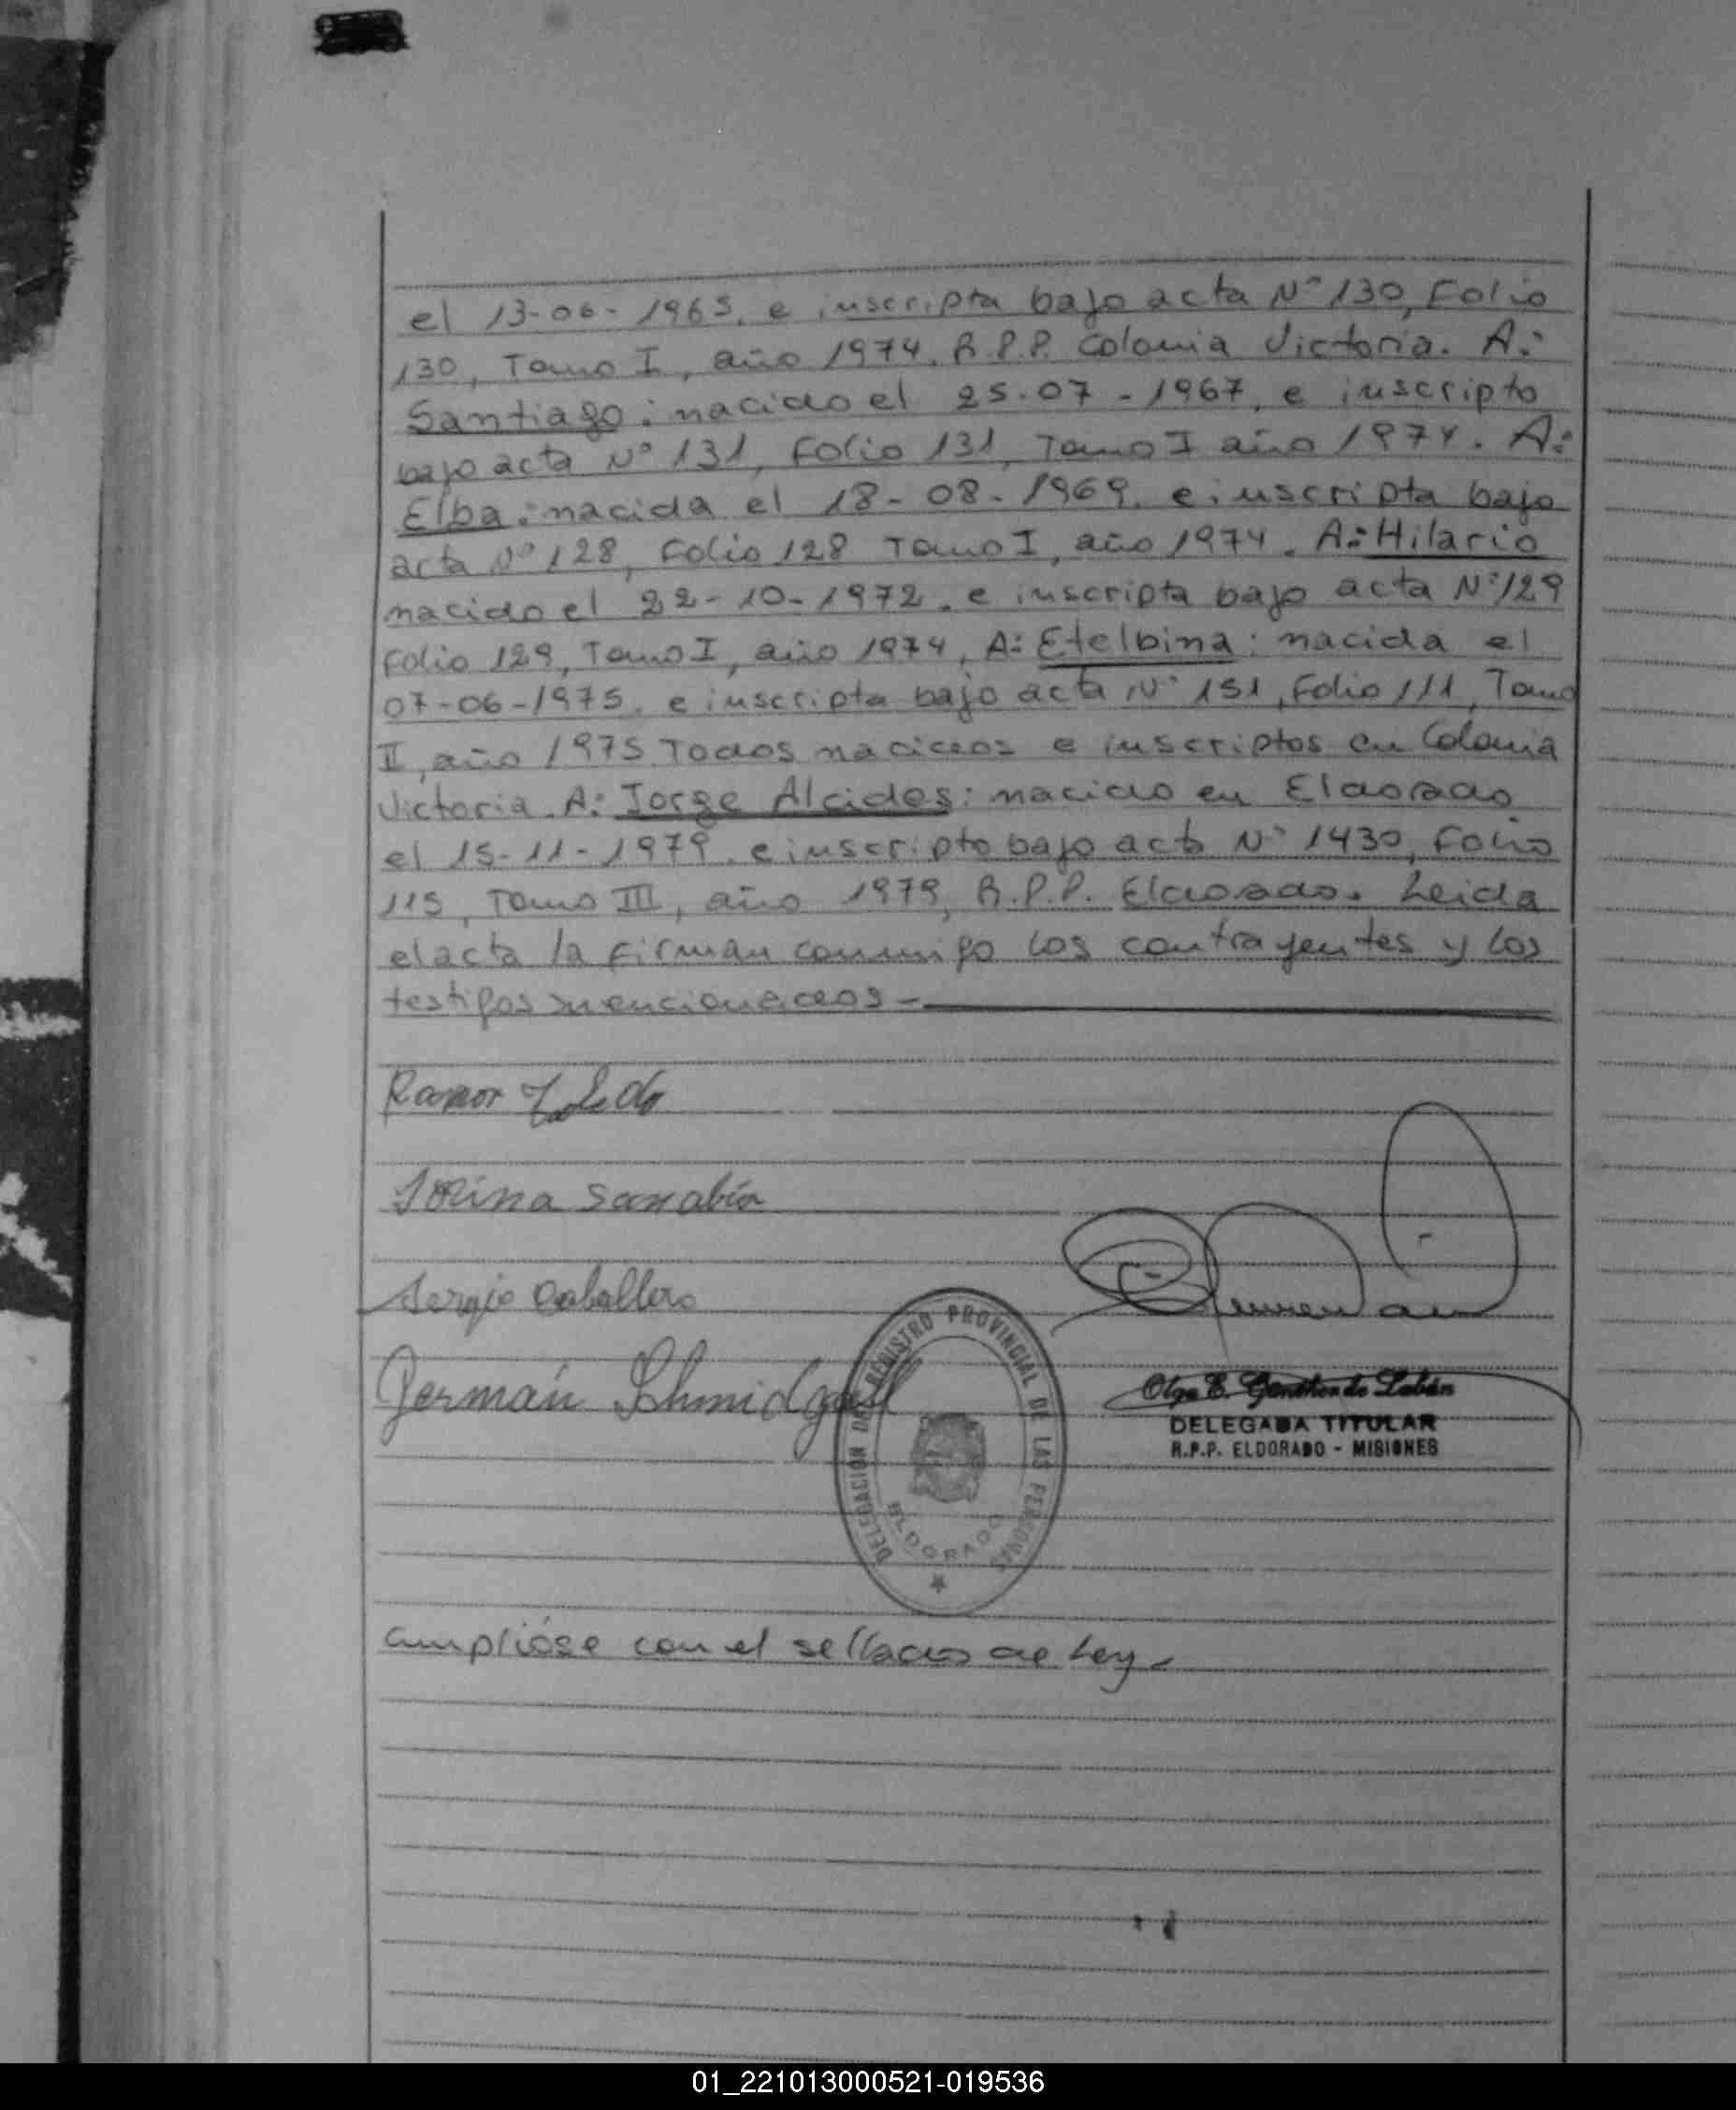 el 13-06-1965, e inscripta bajo acta N° 130, Folio
130, Tomo I, año 1974. R.P.P. Colonia Victoria. A:
Santiago: nacido el 25-07-1967, e inscripto
bajo acta N° 131, Folio 131, Tomo I año 1974. A:
Elba: nacida el 18-08-1969, e inscripta bajo
acta N° 128, Folio 128 Tomo I, año 1974. A: Hilario
nacido el 22-10-1972, e inscripta bajo acta N° 129
Folio 129, Tomo I, año 1974, A: Etelbina: nacida el
07-06-1975, e inscripta bajo acta N° 151, Folio 111, Tomo
II, año 1975. Todos nacidos e inscriptos en Colonia
Victoria. A: Jorge Alcides: nacido en Eldorado
el 15-11-1979, e inscripto bajo acta N° 1430, Folio
115, Tomo III, año 1979, R.P.P. Eldorado. Leida
el acta la firman conmigo los contrayentes y los
testigos mencionados-
Ramon Toledo
Sarabia
Sergio Caballero
Germán
DELEGACION DEL REGISTRO PROVINCIAL DE LAS PERSONAS
ELDORADO
Olga E. de
DELEGADA TITULAR
R.P.P. ELDORADO - MISIONES
Cumplióse con el sellado de Ley-
01_221013000521-019536